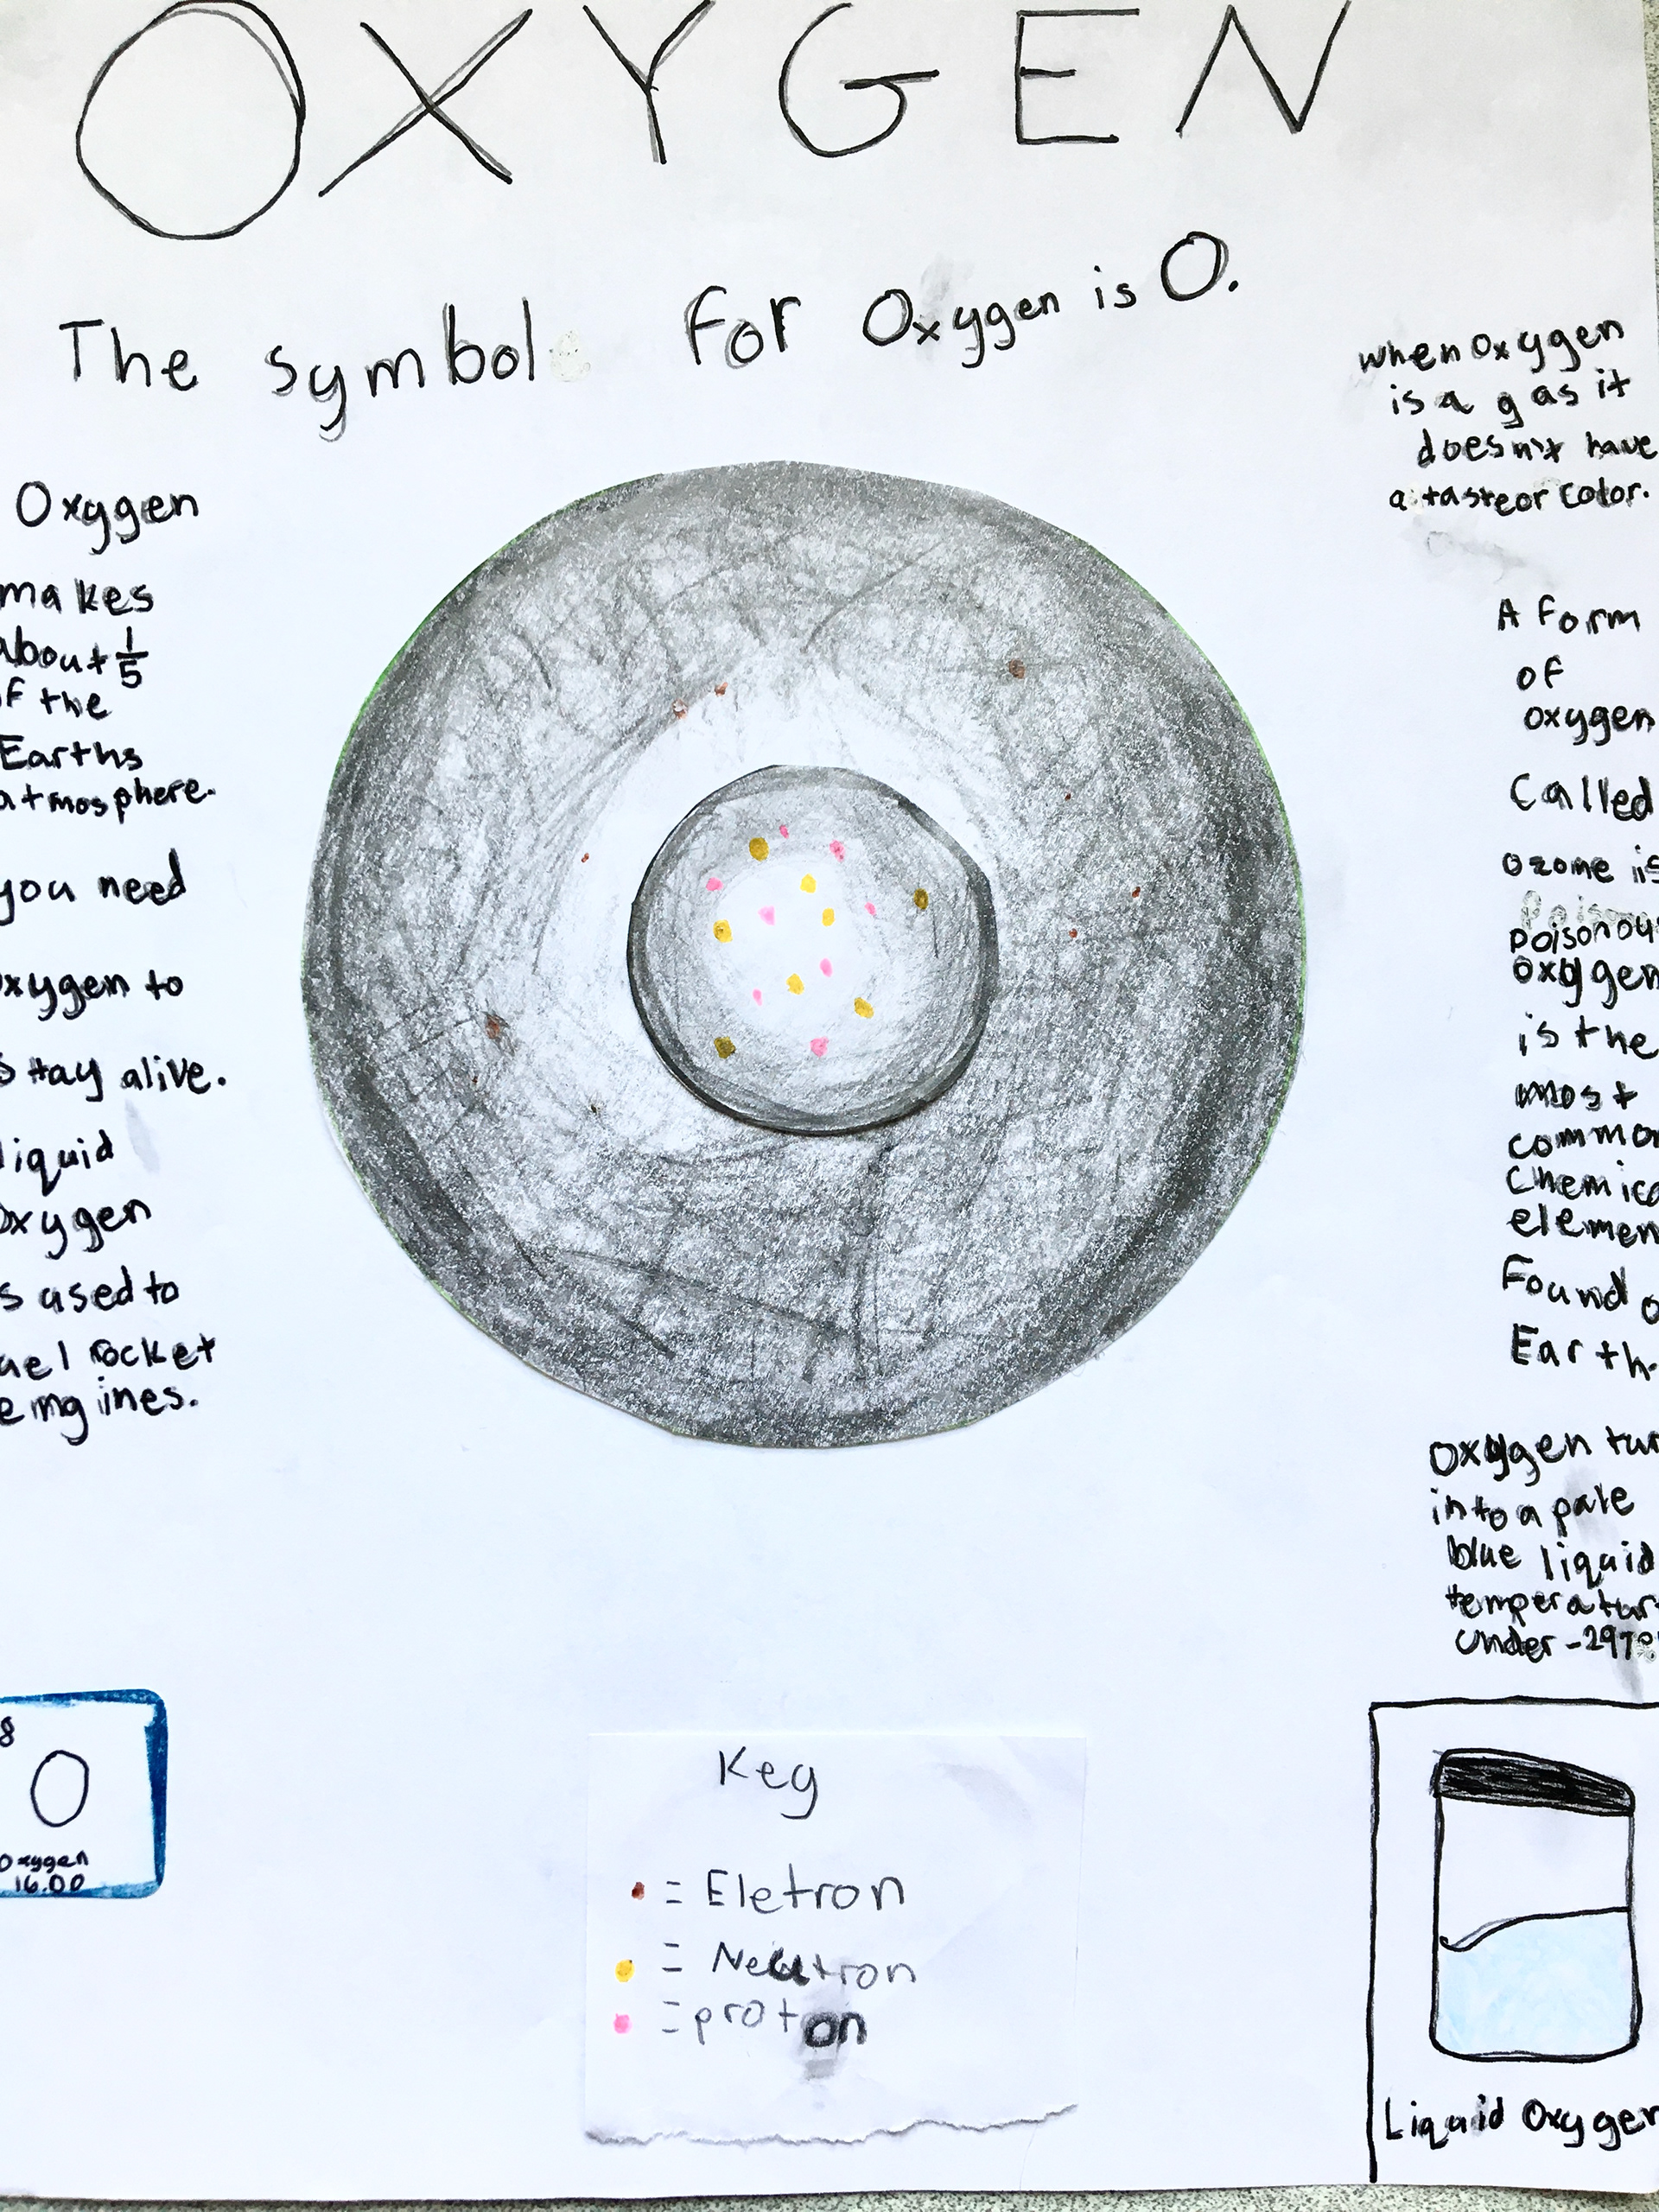 OXYGEN
The symbol for Oxygen is O.
Oxygen
makes
about 1/5
of the
Earths
atmosphere.
you need
oxygen to
stay alive.
liquid
Oxygen
s used to
uel rocket
engines.
when oxygen
is a gas it
doesn't have
a taste or color.
A form
of
oxygen
Called
ozone is
poisonou
oxygen
is the
most
commo
Chemica
elemen
Found o
Earth.
Oxygen tur
into a pale
blue liquid
temperatur
Under -297°
8
O
Oxygen
16.00
Key
= Eletron
= Neutron
= proton
Liquid Oxygen